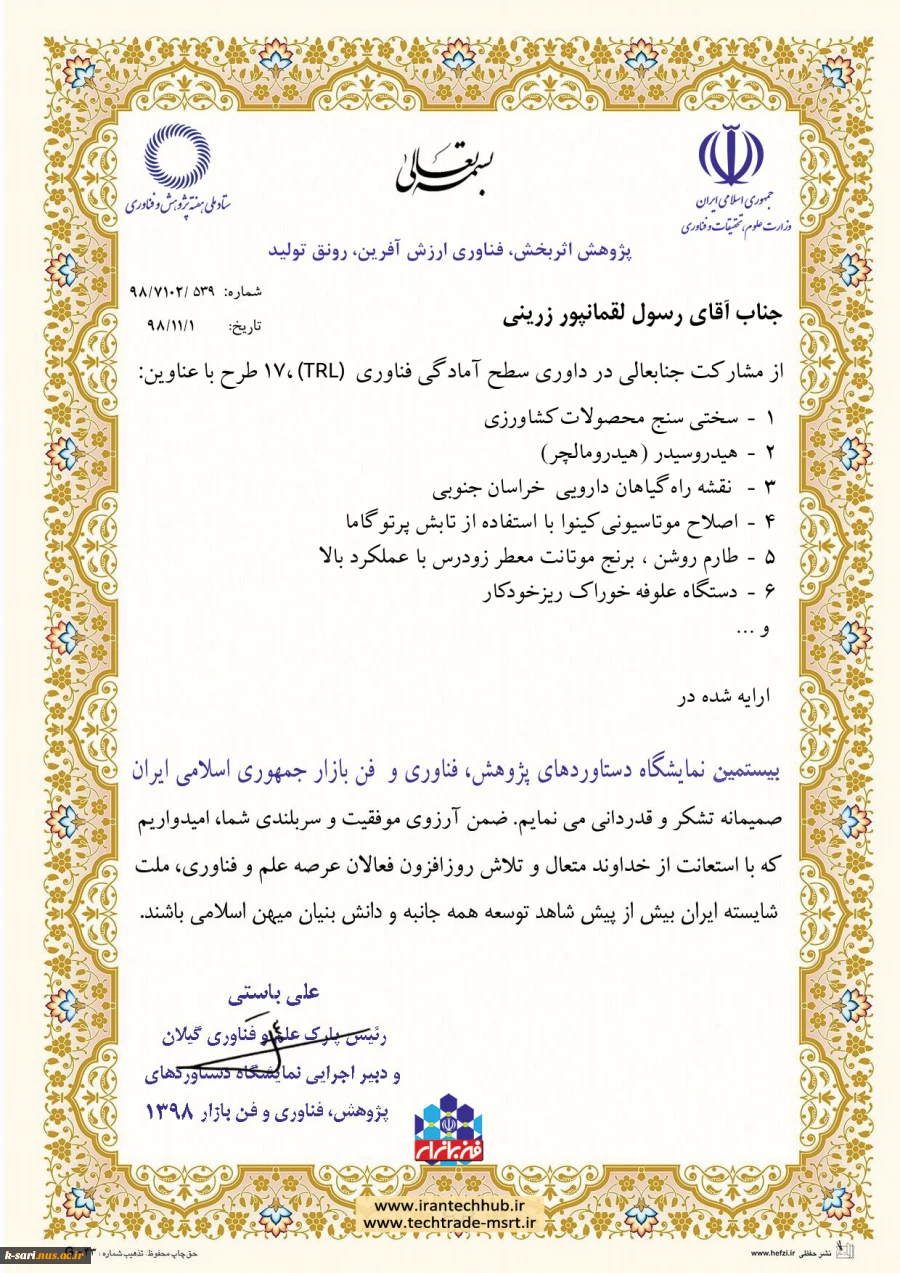 بسمه تعالی
جمهوری اسلامی ایران
وزارت علوم، تحقیقات و فناوری
ستاد ملی هفته پژوهش و فناوری
پژوهش اثربخش، فناوری ارزش آفرین، رونق تولید
شماره: ۵۳۹ /۹۸/۷۱۰۲
تاریخ: ۹۸/۱۱/۱
جناب آقای رسول لقمانپور زرینی
از مشارکت جنابعالی در داوری سطح آمادگی فناوری (TRL)، ۱۷ طرح با عناوین:
۱ - سختی سنج محصولات کشاورزی
۲ - هیدروسیدر (هیدرومالچر)
۳ - نقشه راه گیاهان دارویی خراسان جنوبی
۴ - اصلاح موتاسیونی کینوا با استفاده از تابش پرتو گاما
۵ - طارم روشن ، برنج موتانت معطر زودرس با عملکرد بالا
۶ - دستگاه علوفه خوراک ریزخودکار
و ...
ارایه شده در
بیستمین نمایشگاه دستاوردهای پژوهش، فناوری و فن بازار جمهوری اسلامی ایران
صمیمانه تشکر و قدردانی می نمایم. ضمن آرزوی موفقیت و سربلندی شما، امیدواریم
که با استعانت از خداوند متعال و تلاش روزافزون فعالان عرصه علم و فناوری، ملت
شایسته ایران بیش از پیش شاهد توسعه همه جانبه و دانش بنیان میهن اسلامی باشند.
علی باستی
رئیس پارک علم و فناوری گیلان
و دبیر اجرایی نمایشگاه دستاوردهای
پژوهش، فناوری و فن بازار ۱۳۹۸
فن بازار
www.irantechhub.ir
www.techtrade-msrt.ir
نشر حفظی www.hefzi.ir
حق چاپ محفوظ. تذهیب شماره :
k-sari.nus.ac.ir